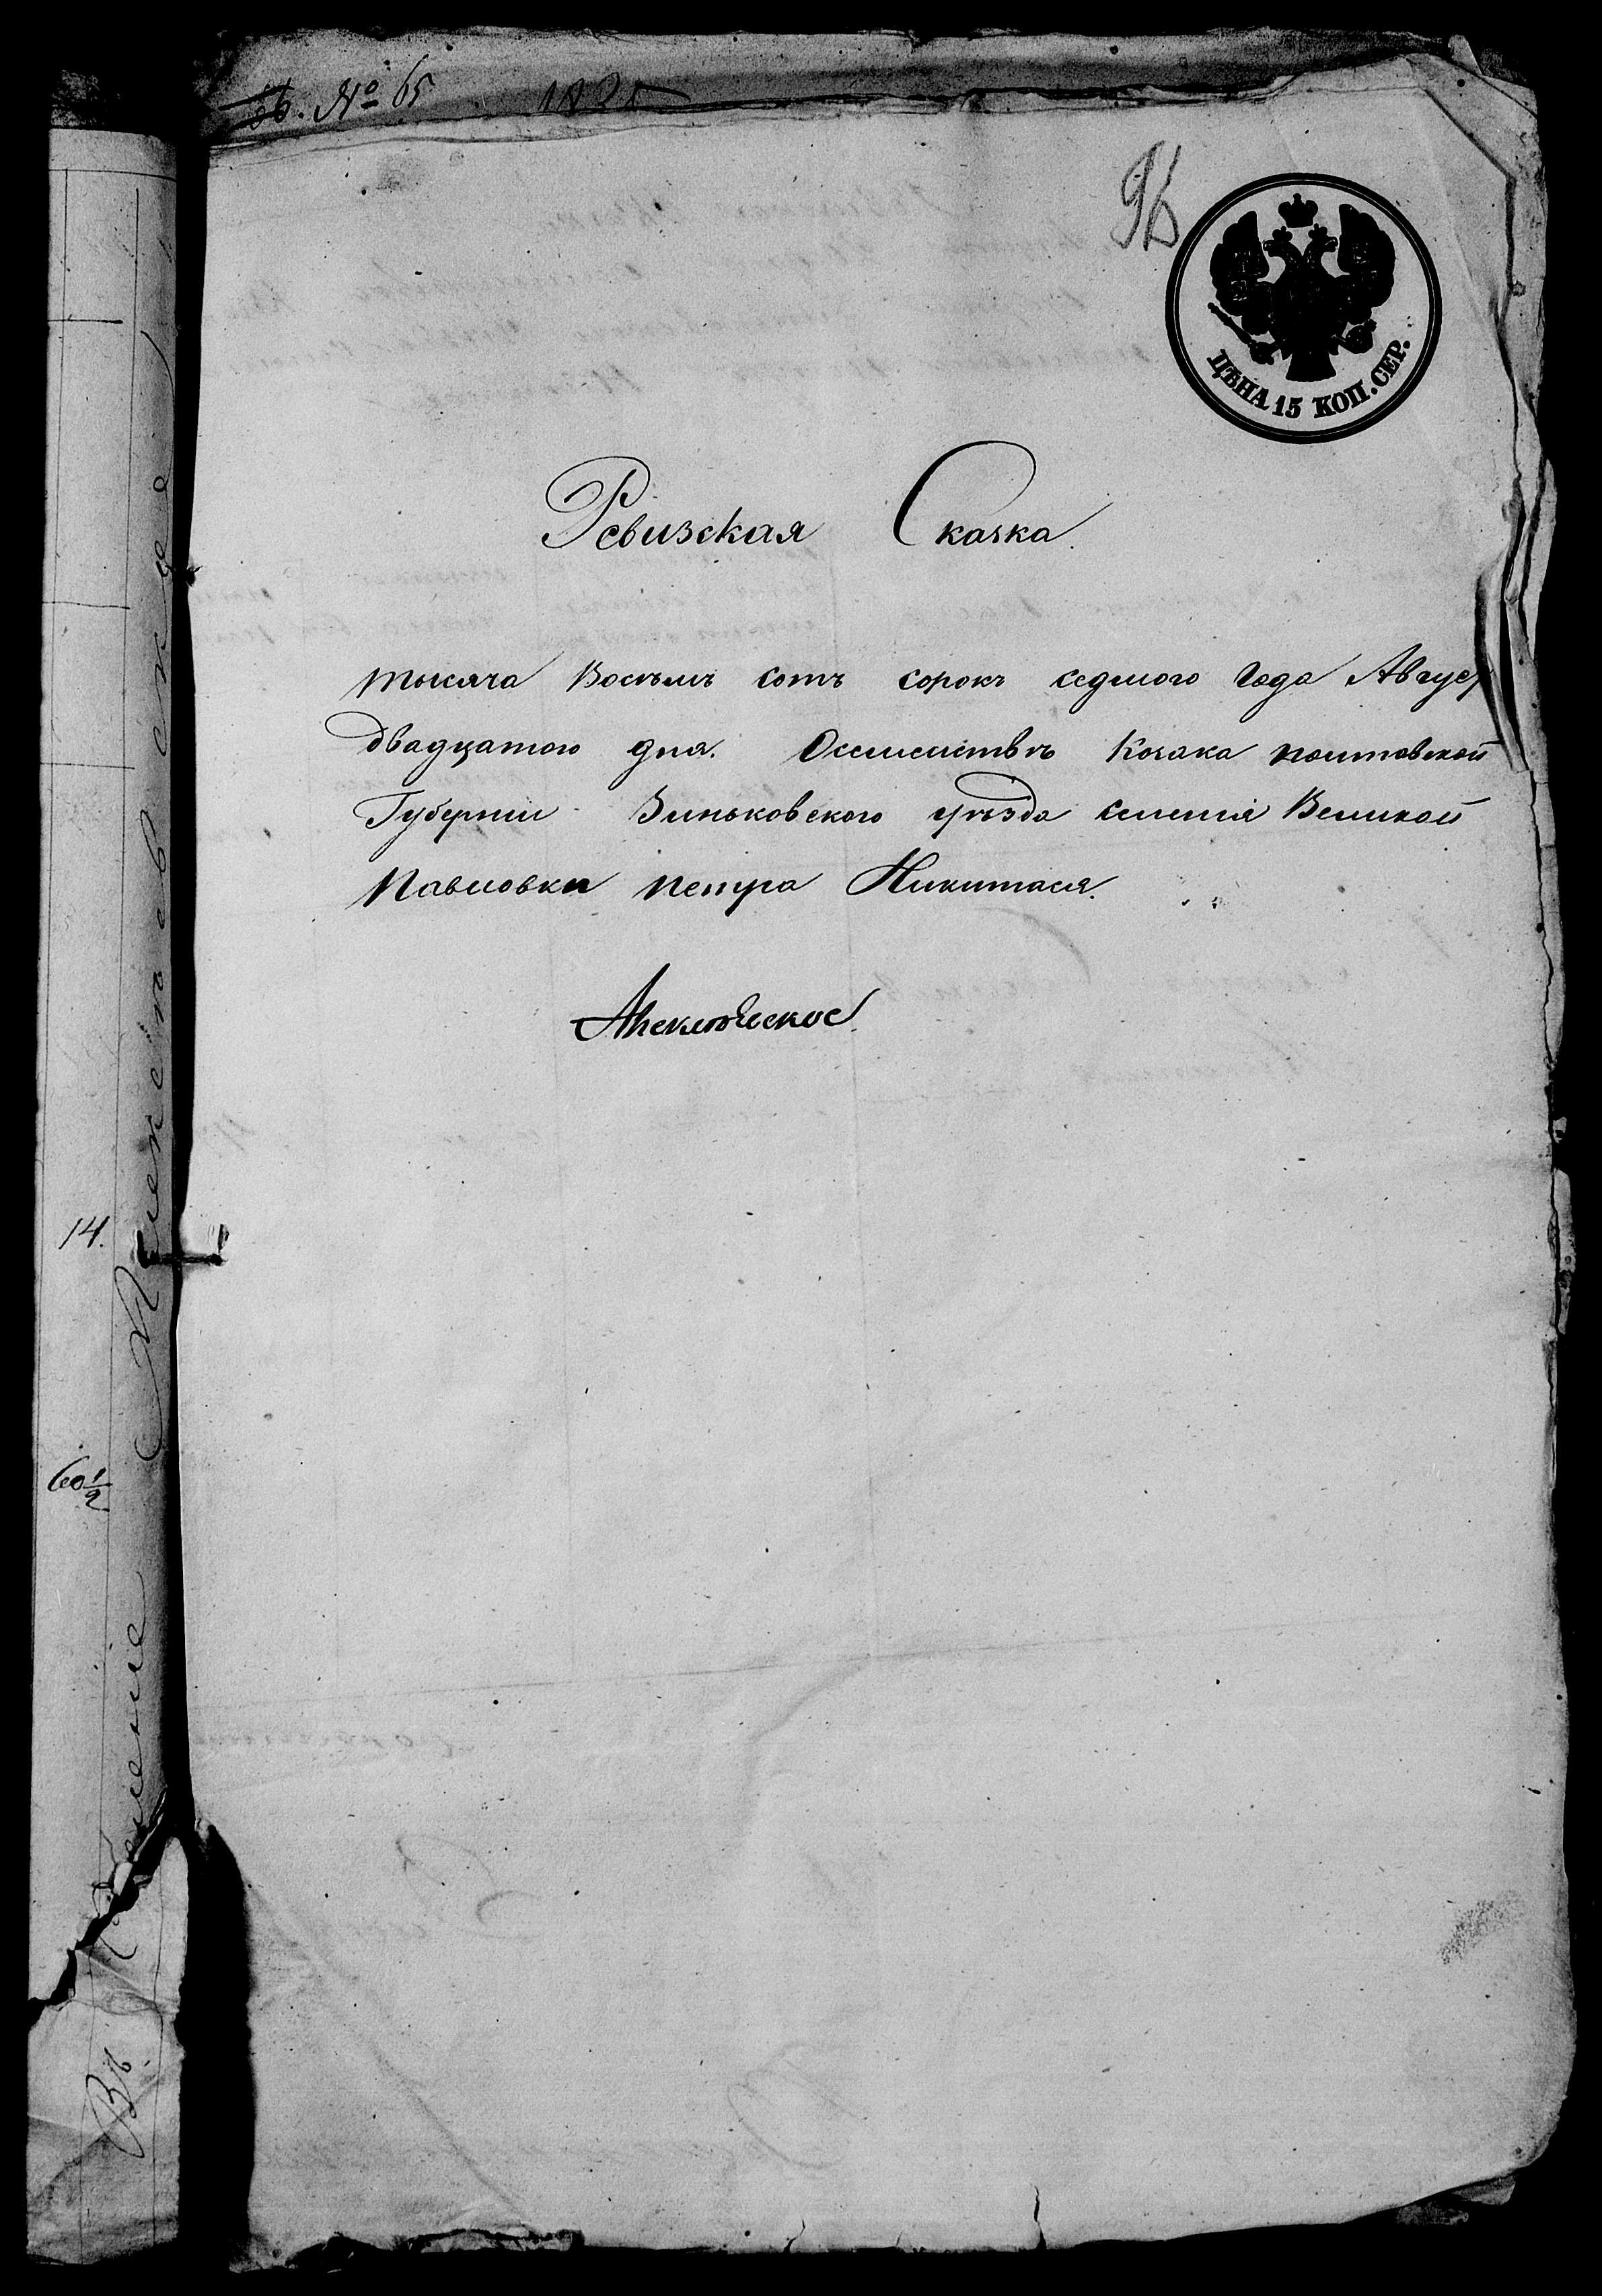 № 65
96
ЦѢНА 15 КОП. СЕР.
Ревизская Скаска
тысяча Восѣмъ сотъ сорокъ седмого Года Август
двадцатого дня. Осемействѣ Козака полтовской
Губернии Зиньковского уѣзда селения Великой
Павловки петра Никитася.
14.
60 1/2